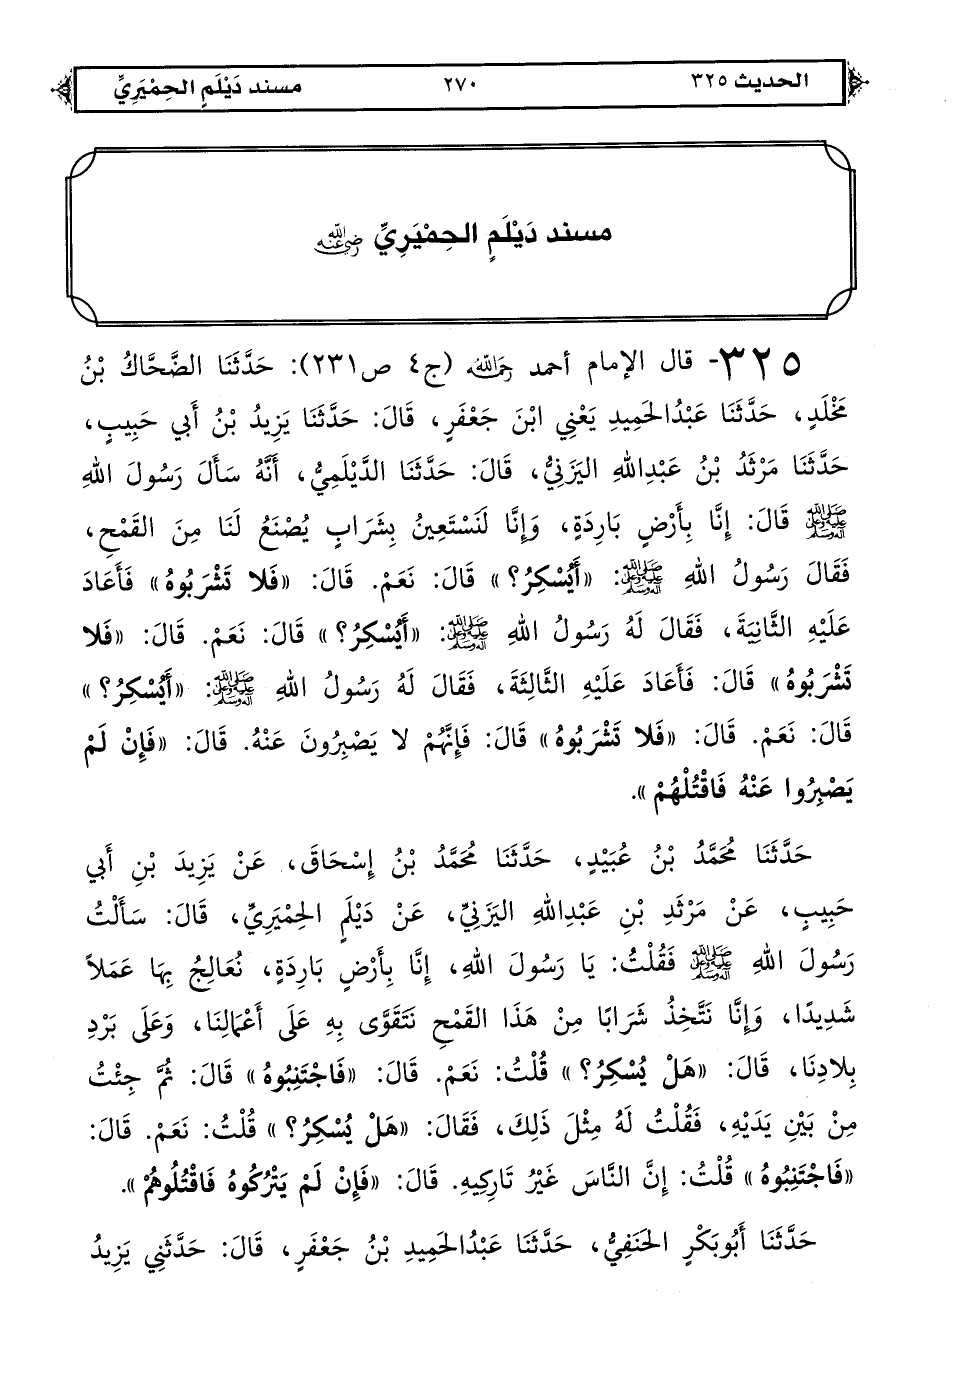 الحديث ٣٢٥ ٢٧٠ مسند دَيْلَمٍ الحِمْيَرِيِّ
مسند دَيْلَمٍ الحِمْيَرِيِّ رضي الله عنه
٣٢٥- قال الإمام أحمد رحمه الله (ج٤ ص٢٣١): حَدَّثَنَا الضَّحَّاكُ بْنُ
مَخْلَدٍ، حَدَّثَنَا عَبْدُالحَمِيدِ يَعْنِي ابْنَ جَعْفَرٍ، قَالَ: حَدَّثَنَا يَزِيدُ بْنُ أَبِي حَبِيبٍ،
حَدَّثَنَا مَرْثَدُ بْنُ عَبْدِاللهِ اليَزَنِيُّ، قَالَ: حَدَّثَنَا الدَّيْلَمِيُّ، أَنَّهُ سَأَلَ رَسُولَ اللهِ
ﷺ قَالَ: إِنَّا بِأَرْضٍ بَارِدَةٍ، وَإِنَّا لَنَسْتَعِينُ بِشَرَابٍ يُصْنَعُ لَنَا مِنَ القَمْحِ،
فَقَالَ رَسُولُ اللهِ ﷺ: «أَيُسْكِرُ؟» قَالَ: نَعَمْ. قَالَ: «فَلا تَشْرَبُوهُ» فَأَعَادَ
عَلَيْهِ الثَّانِيَةَ، فَقَالَ لَهُ رَسُولُ اللهِ ﷺ: «أَيُسْكِرُ؟» قَالَ: نَعَمْ. قَالَ: «فَلا
تَشْرَبُوهُ» قَالَ: فَأَعَادَ عَلَيْهِ الثَّالِثَةَ، فَقَالَ لَهُ رَسُولُ اللهِ ﷺ: «أَيُسْكِرُ؟»
قَالَ: نَعَمْ. قَالَ: «فَلا تَشْرَبُوهُ» قَالَ: فَإِنَّهُمْ لا يَصْبِرُونَ عَنْهُ. قَالَ: «فَإِنْ لَمْ
يَصْبِرُوا عَنْهُ فَاقْتُلْهُمْ».
حَدَّثَنَا مُحَمَّدُ بْنُ عُبَيْدٍ، حَدَّثَنَا مُحَمَّدُ بْنُ إِسْحَاقَ، عَنْ يَزِيدَ بْنِ أَبِي
حَبِيبٍ، عَنْ مَرْثَدِ بْنِ عَبْدِاللهِ اليَزَنِيِّ، عَنْ دَيْلَمِ الحِمْيَرِيِّ، قَالَ: سَأَلْتُ
رَسُولَ اللهِ ﷺ فَقُلْتُ: يَا رَسُولَ اللهِ، إِنَّا بِأَرْضٍ بَارِدَةٍ، نُعَالِجُ بِهَا عَمَلاً
شَدِيدًا، وَإِنَّا نَتَّخِذُ شَرَابًا مِنْ هَذَا القَمْحِ نَتَقَوَّى بِهِ عَلَى أَعْمَالِنَا، وَعَلَى بَرْدِ
بِلادِنَا، قَالَ: «هَلْ يُسْكِرُ؟» قُلْتُ: نَعَمْ. قَالَ: «فَاجْتَنِبُوهُ» قَالَ: ثُمَّ جِئْتُ
مِنْ بَيْنِ يَدَيْهِ، فَقُلْتُ لَهُ مِثْلَ ذَلِكَ، فَقَالَ: «هَلْ يُسْكِرُ؟» قُلْتُ: نَعَمْ. قَالَ:
«فَاجْتَنِبُوهُ» قُلْتُ: إِنَّ النَّاسَ غَيْرُ تَارِكِيهِ. قَالَ: «فَإِنْ لَمْ يَتْرُكُوهُ فَاقْتُلُوهُمْ».
حَدَّثَنَا أَبُوبَكْرٍ الحَنَفِيُّ، حَدَّثَنَا عَبْدُالحَمِيدِ بْنُ جَعْفَرٍ، قَالَ: حَدَّثَنِي يَزِيدُ